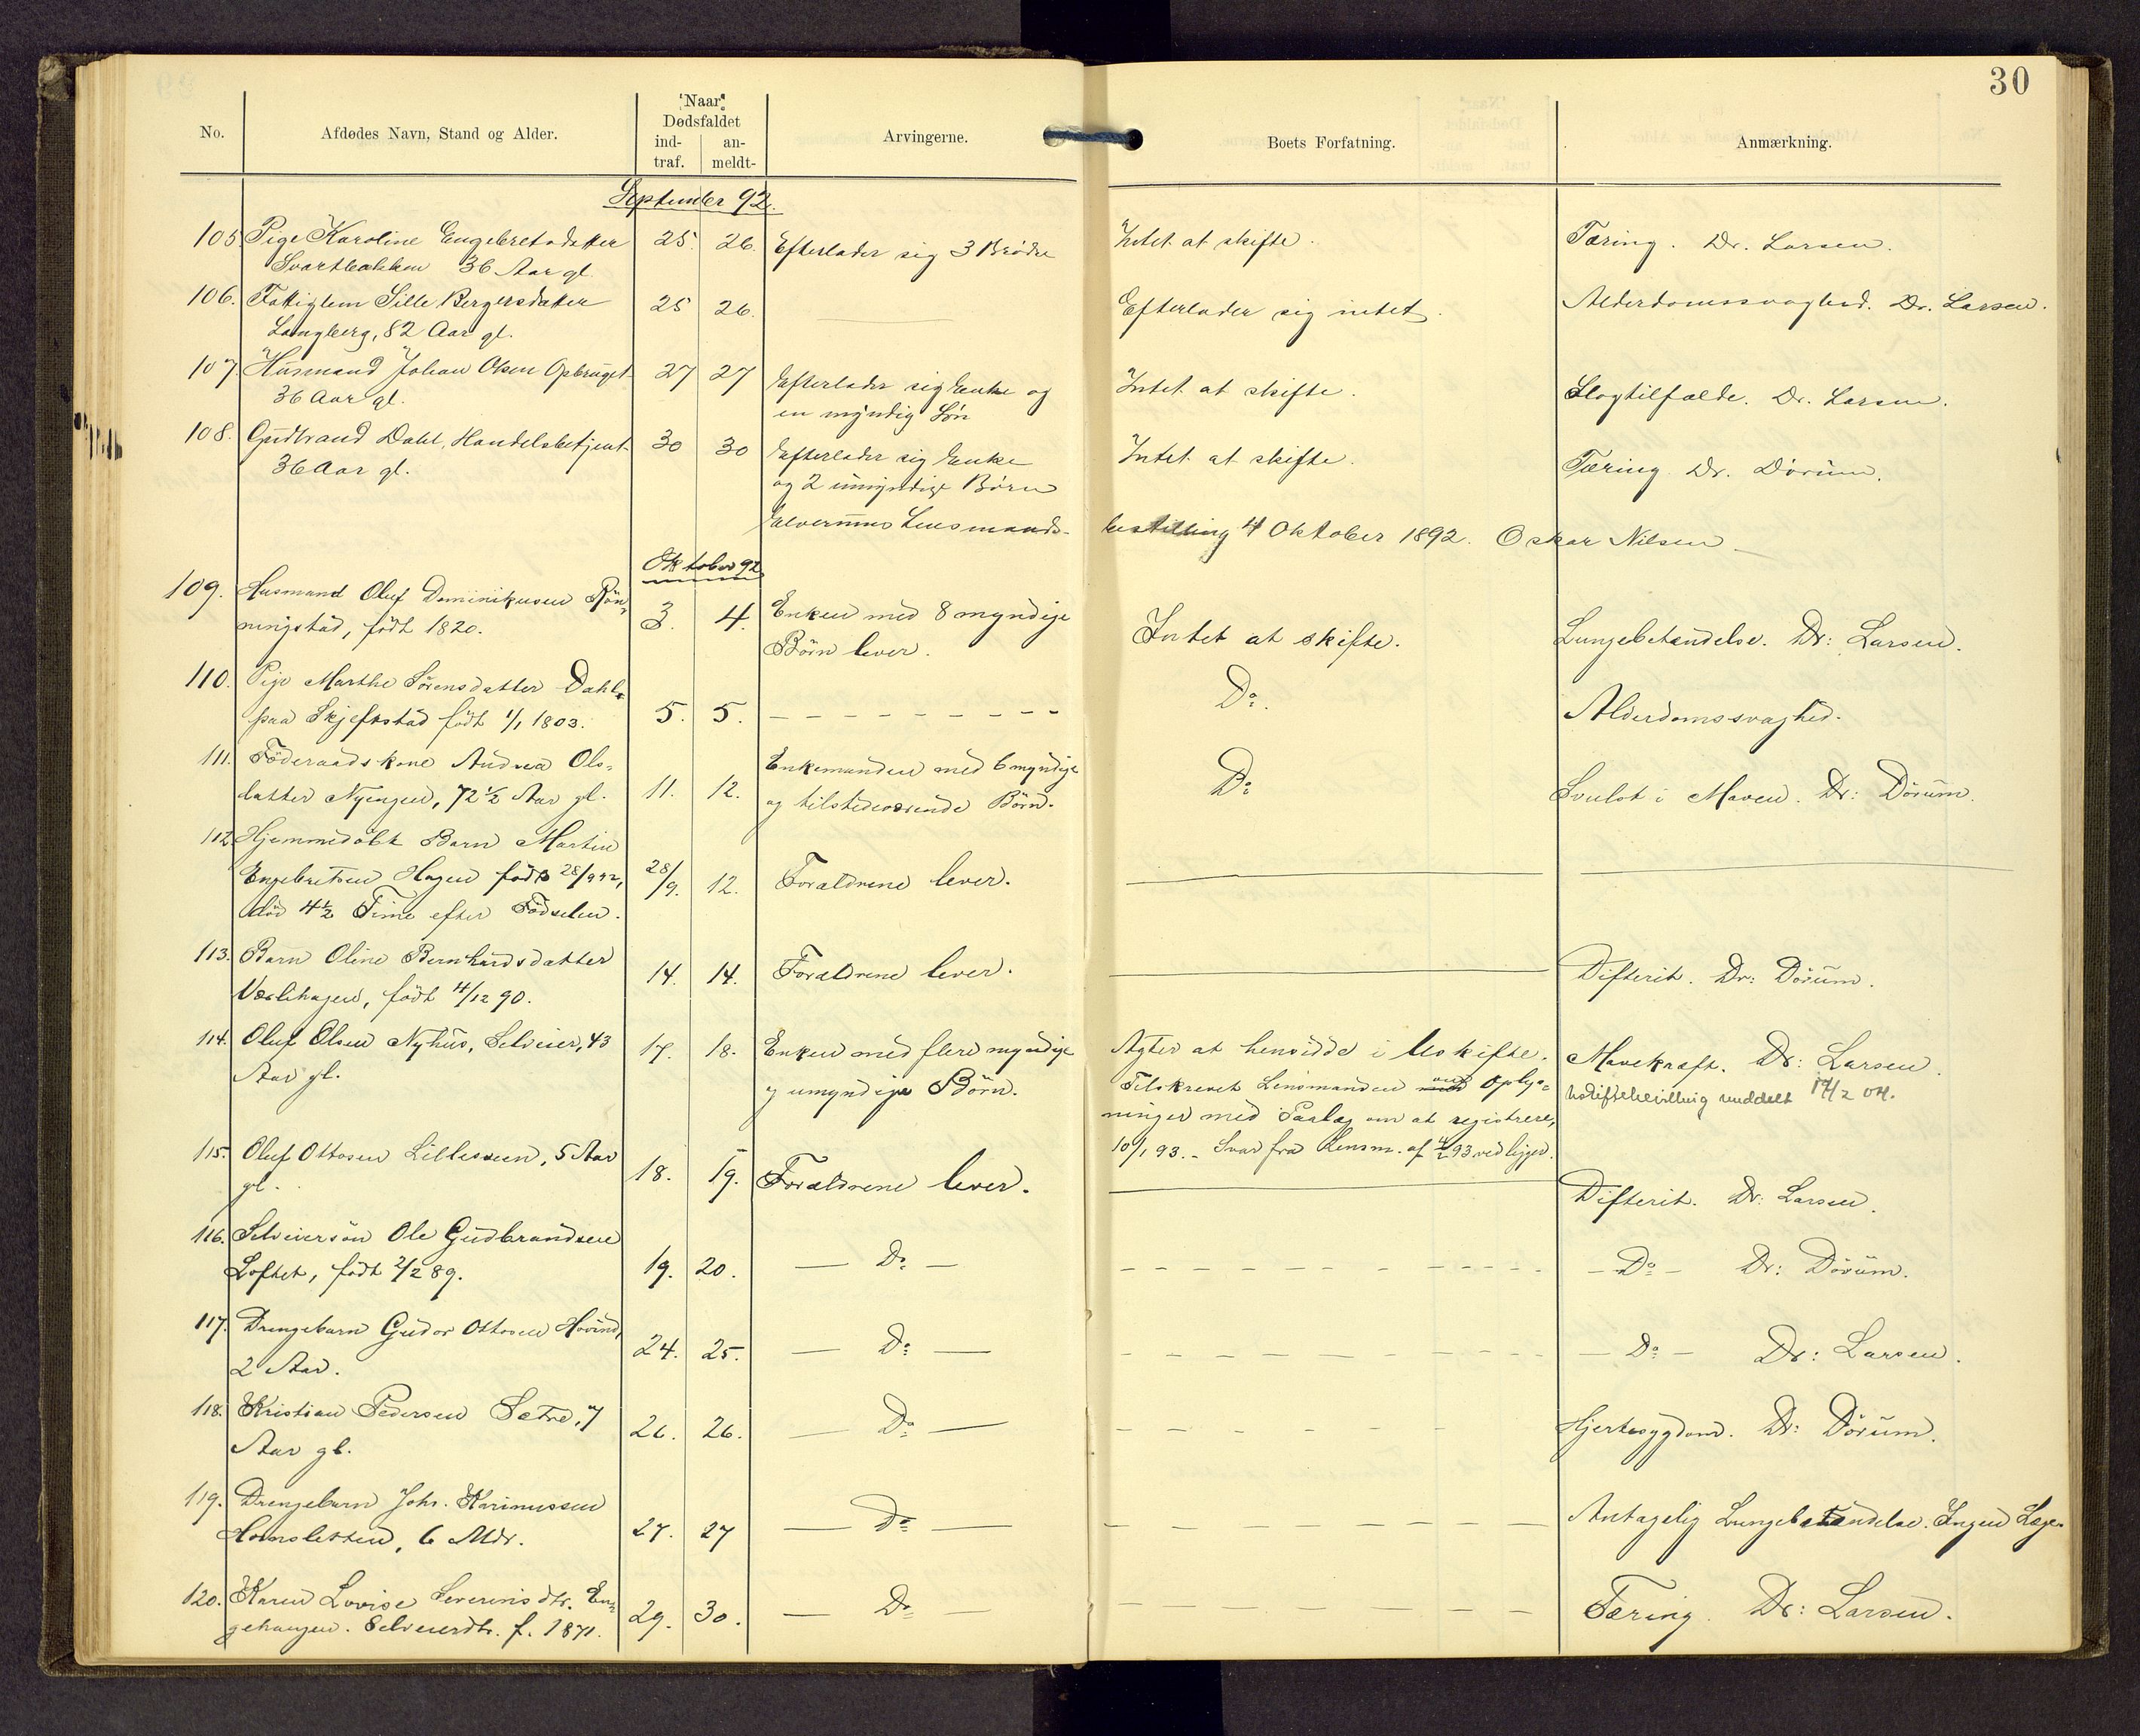 30
No.
Afdødes Navn, Stand og Alder.
Naar
Dødsfaldet
ind-
traf.
an-
meldt-
Arvingerne.
Boets Forfatning.
Anmærkning.
September 92.
105 Pige Karoline Engebretsdatter 25. 26. Efterlader sig 3 Brødre Intet at skifte. Tæring. Dr. Larsen.
Svartbakken 36 Aar gl.
106. Fattiglem Sille Bergersdatter 25 26. Efterlader sig intet. Alderdomssvaghed. Dr. Larsen.
Langberg, 82 Aar gl.
107. Husmand Johan Olsen Opbruget 27 27 Efterlader sig Enke og Intet at skifte. Slagtilfælde. Dr. Larsen.
36 Aar gl. en myndig Søn
108. Gudbrand Dahl, Handelsbetjent 30 30 Efterlader sig Enke Intet at skifte. Tæring Dr. Dørum.
36 Aar gl. og 2 umyndige Børn
Elverums Lensmands- bestilling 4 Oktober 1892. Oskar Nilsen
Oktober 92
109. Husmand Oluf Dominikusen Røn- 3. 4. Enken med 8 myndige Intet at skifte. Lungebetændelse. Dr: Larsen.
ningstad, født 1820. Børn lever.
110. Pige Marthe Sørensdatter Dahl 5. 5. - - - - - - - - - Do. Alderdomssvaghed.
paa Skjefstad født 1/1 1803.
111. Föderaadskone Andrea Ols- 11. 12. Enkemanden med 6 myndige Do Svulst i Maven. Dr: Dørum.
datter Nyengen, 72 1/2 Aar gl. og tilstedeværende Børn.
112 Hjemmedøbt Barn Martin
Engebretsen Hagen født 28/9 92, 28/9. 12. Forældrene lever.
død 4 1/2 Time efter Fødselen.
113. Barn Oline Bernhardsdatter 14. 14. Forældrene lever. Difterit. Dr: Dørum.
Væslehagen, født 4/12 90.
114. Oluf Olsen Nyhus, Selveier, 43 17. 18. Enken med flere myndige Agter at hensidde i Uskifte. Mavekræft. Dr: Larsen.
Aar gl. og umyndige Børn. Tilskrevet Lensmanden om Oplys- Uskiftebevilling meddelt 17/2 04.
ninger med Paalæg om at registrere,
10/1 93. - Svar fra Lensm. af 4/2 93 vedligger.
115. Oluf Ottosen Lilleveen, 5 Aar 18. 19. Forældrene lever. Difterit. Dr: Larsen.
gl.
116. Selveiersøn Ole Gudbrandsen
Loftet, født 2/2 89. 19. 20. — Do — - - - - - - — Do — Dr: Dørum.
117. Drengebarn Gudor Ottosen Hovind, 24. 25. — Do — - - - - - - — Do — Dr: Larsen.
2 Aar.
118. Kristian Pedersen Sætre, 7 26. 26. — Do — - - - - - - Hjertesygdom. Dr: Dørum.
Aar gl.
119. Drengebarn Johs. Karinussen 27. 27 — Do — - - - - - - Antagelig Lungebetændelse. Ingen Læge.
Hornsletten, 6 Mdr.
120. Karen Lovise Severinsdtr. En- 29. 30. — Do — - - - - - - Tæring. Dr: Larsen.
gehaugen. Selveierdtr. f. 1871.